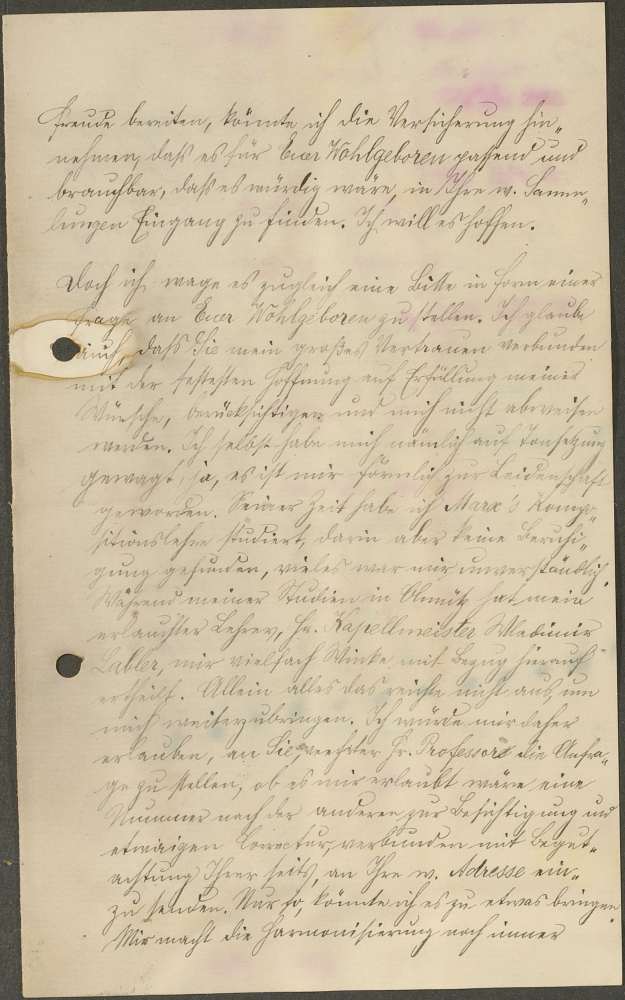 Freude bereiten, könnte ich die Versicherung hin„
nehmen, daß es für Euer Wohlgeboren passend und
brauchbar, daß es würdig wäre, in Ihre w. Samm„
lungen Eingang zu finden. Ich will es hoffen.
Doch ich wage es zugleich eine Bitte in Form einer
Frage an Euer Wohlgeboren zu stellen. Ich glaube
auch, daß Sie mein großes Vertrauen verbunden
mit der festesten Hoffnung auf Erfüllung meines
Wunsches, berücksichtigen und mich nicht abweisen
werden. Ich selbst habe mich nämlich auf Tonsetzung
gewagt, ja, es ist mir förmlich zur Leidenschaft
geworden. Seiner Zeit habe ich Marx's Kompo„
sitionslehre studiert, darin aber keine Beruhi„
gung gefunden, vieles war mir unverständlich.
Während meiner Studien in Olmütz hat mein
erlauchter Lehrer, Hr. Kapellmeister Wladimir
Labler, mir vielfach Winke mit Bezug hierauf
ertheilt. Allein alles das reichte nicht aus, um
mich weiterzubringen. Ich würde mir daher
erlauben, an Sie, geehrter Hr. Professor die Anfra„
ge zu stellen, ob es mir erlaubt wäre, eine
Nummer nach der anderen zur Besichtigung und
etwaigen Correctur, verbunden mit Begut„
achtung Ihrer seits, an Ihre w. Adresse ein„
zu senden. Nur so, könnte ich es zu etwas bringen.
Mir macht die Harmonisierung noch immer